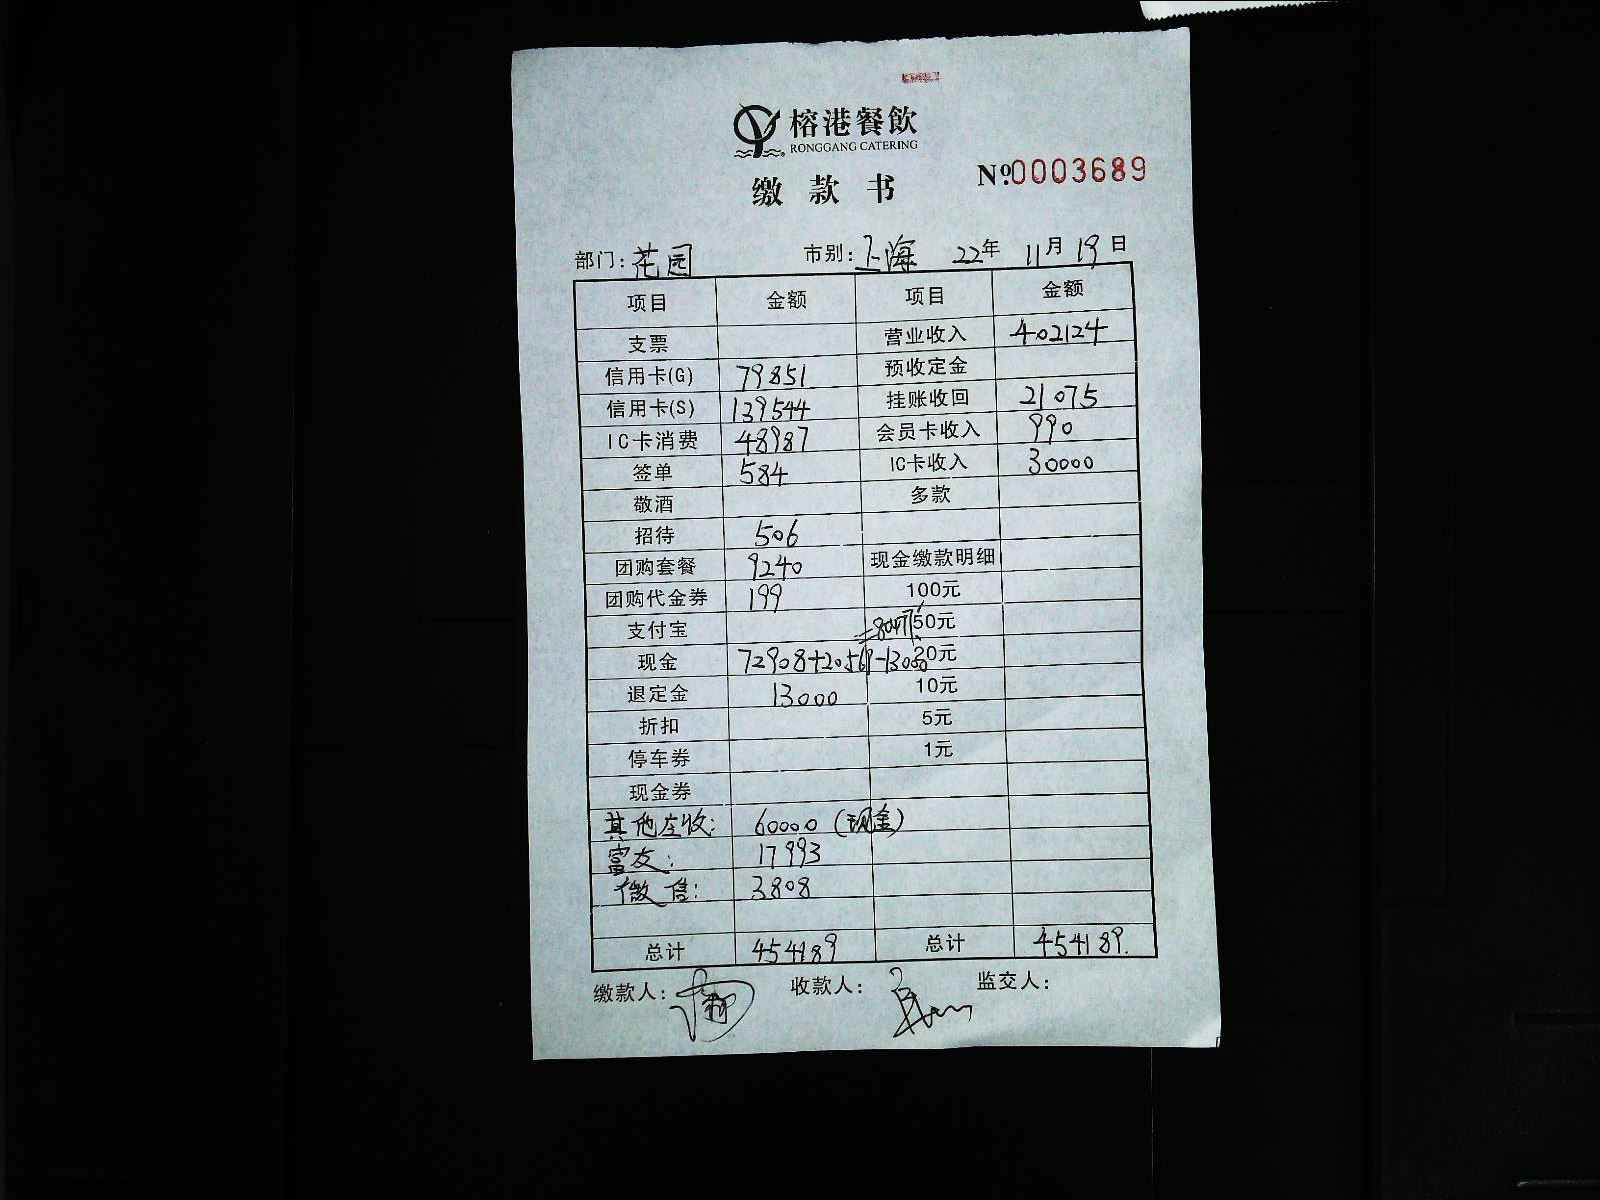 榕港餐飲
RONGGANG CATERING
缴款书
Nº0003689
部门：花园 市别：上海 22年 11月 19日
项目 金额 项目 金额
支票 营业收入 402124
信用卡(G) 79851 预收定金
信用卡(S) 139544 挂账收回 21075
IC卡消费 48987 会员卡收入 990
签单 584 IC卡收入 30000
敬酒 多款
招待 506
团购套餐 9240 现金缴款明细
团购代金券 199 100元
支付宝 =80477 50元
现金 72908+20569-13000 20元
退定金 13000 10元
折扣 5元
停车券 1元
现金券
其他左收： 60000（现金）
富友： 17993
微信： 3808
总计 454189 总计 454189.
缴款人： 收款人： 监交人：